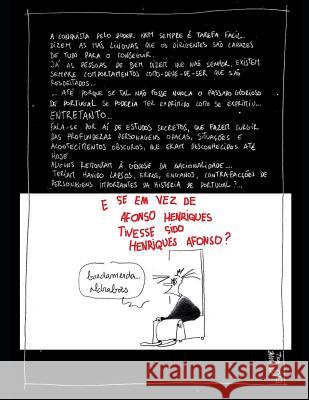 A CONQUISTA PELO PODER NEM SEMPRE É TAREFA FÁCIL.
DIZEM AS MÁS LÍNGUAS QUE OS DIRIGENTES SÃO CAPAZES
DE TUDO PARA O CONSEGUIR.
JÁ AS PESSOAS DE BEM DIZEM QUE NÃO SENHOR, EXISTEM
SEMPRE COMPORTAMENTOS COMO-DEVE-DE-SER QUE SÃO
RESPEITADOS...
... ATÉ PORQUE SE TAL NÃO FOSSE NUNCA O PASSADO GLORIOSO
DE PORTUGAL SE PODERIA TER EXPRIMIDO COMO SE EXPRIMIU...
ENTRETANTO...
FALA-SE POR AÍ DE ESTUDOS SECRETOS, QUE FAZEM SURGIR
DAS PROFUNDEZAS PERSONAGENS OPACAS, SITUAÇÕES E
ACONTECIMENTOS OBSCUROS, QUE ERAM DESCONHECIDOS ATÉ
HOJE.
ALGUNS REMONTAM À GÉNESE DA NACIONALIDADE...
TERIAM HAVIDO LAPSOS, ERROS, ENGANOS, CONTRAFACÇÕES DE
PERSONAGENS IMPORTANTES DA HISTÓRIA DE PORTUGAL?...
E SE EM VEZ DE
AFONSO HENRIQUES
TIVESSE SIDO
HENRIQUES AFONSO?
bardamerda...
aldrabões